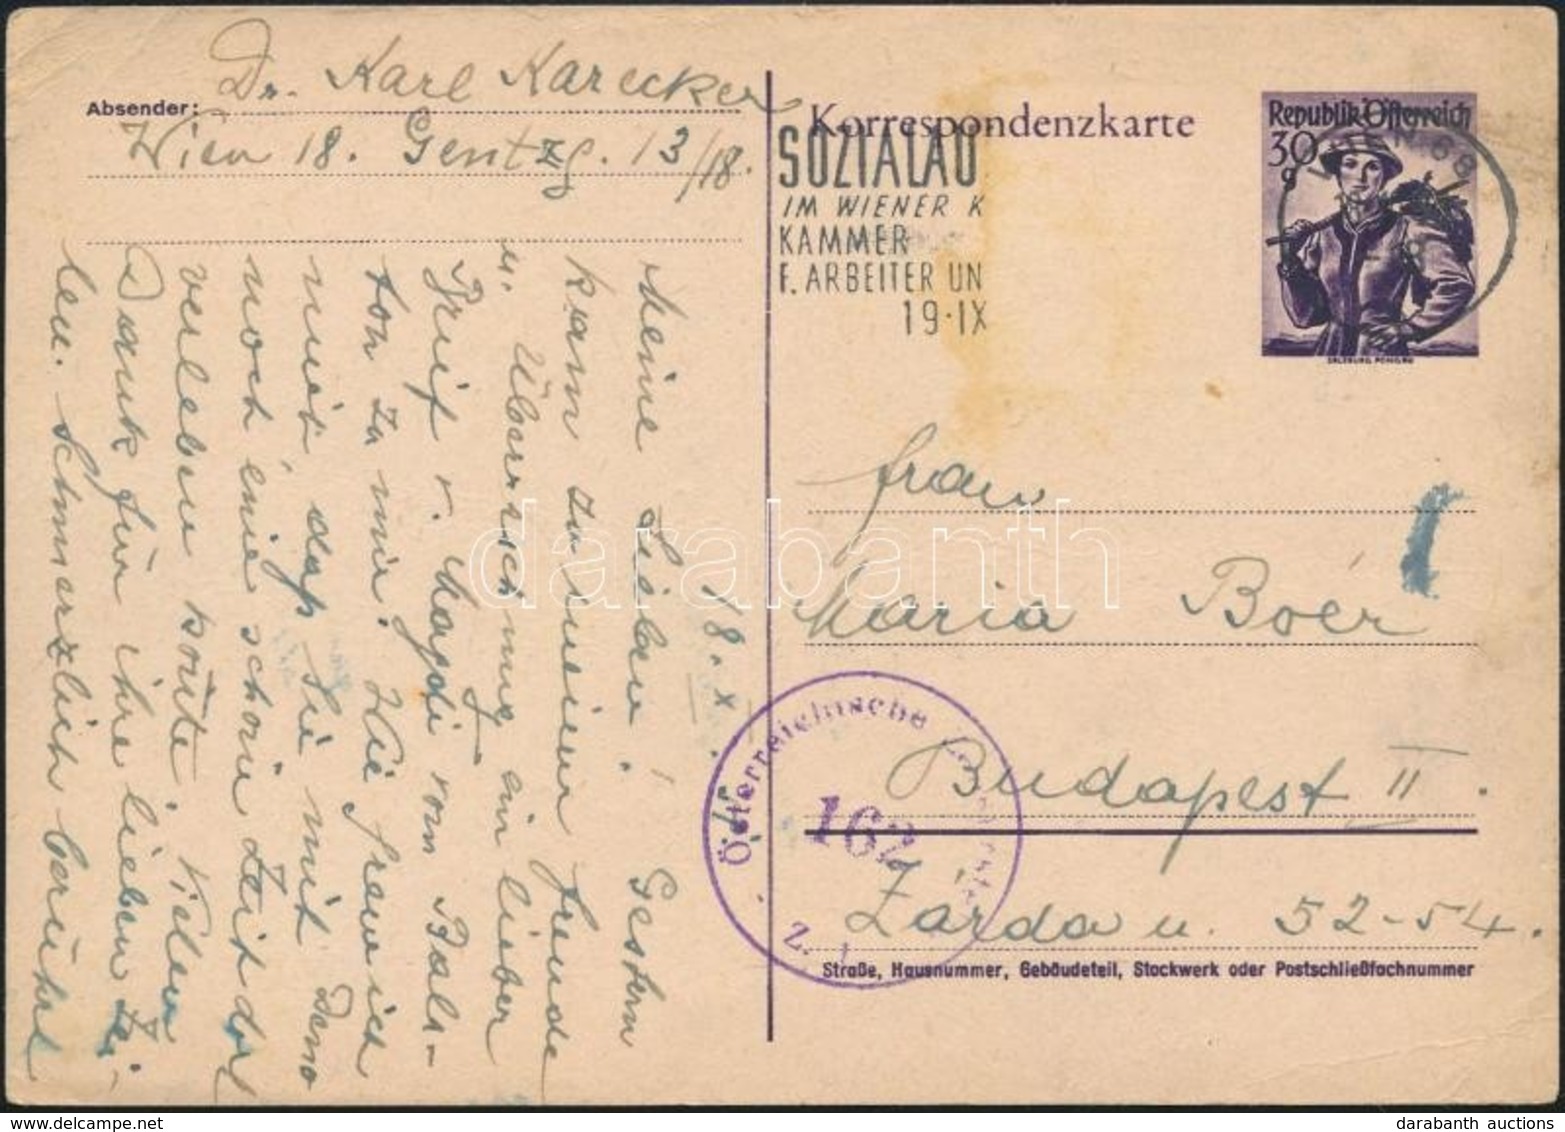 Absender:
Dr. Karl Karecker
Wien 18. Gentzg. 13/18.
Korrespondenzkarte
SOZIALAU
IM WIENER K
KAMMER
F. ARBEITER UN
19·IX
Republik Österreich
30
g
SALZBURG, PONGAU
Frau
Maria Boér
Budapest II.
Zárda u. 52-54.
Straße, Hausnummer, Gebäudeteil, Stockwerk oder Postschließfachnummer
Österreichische
162
Z.
18. X.
Meine Lieben! Gestern
kam zu meiner Freude
u. Überraschung ein lieber
Brief v. Magdi vom Bala-
ton zu mir. Wie freue ich
mich, daß Sie mit Demo
noch eine schöne Zeit dort
verleben konnte. Vielen
Dank für ihre lieben Zei-
len. Schmerzlich berührt
darabanth
darabanth auctions